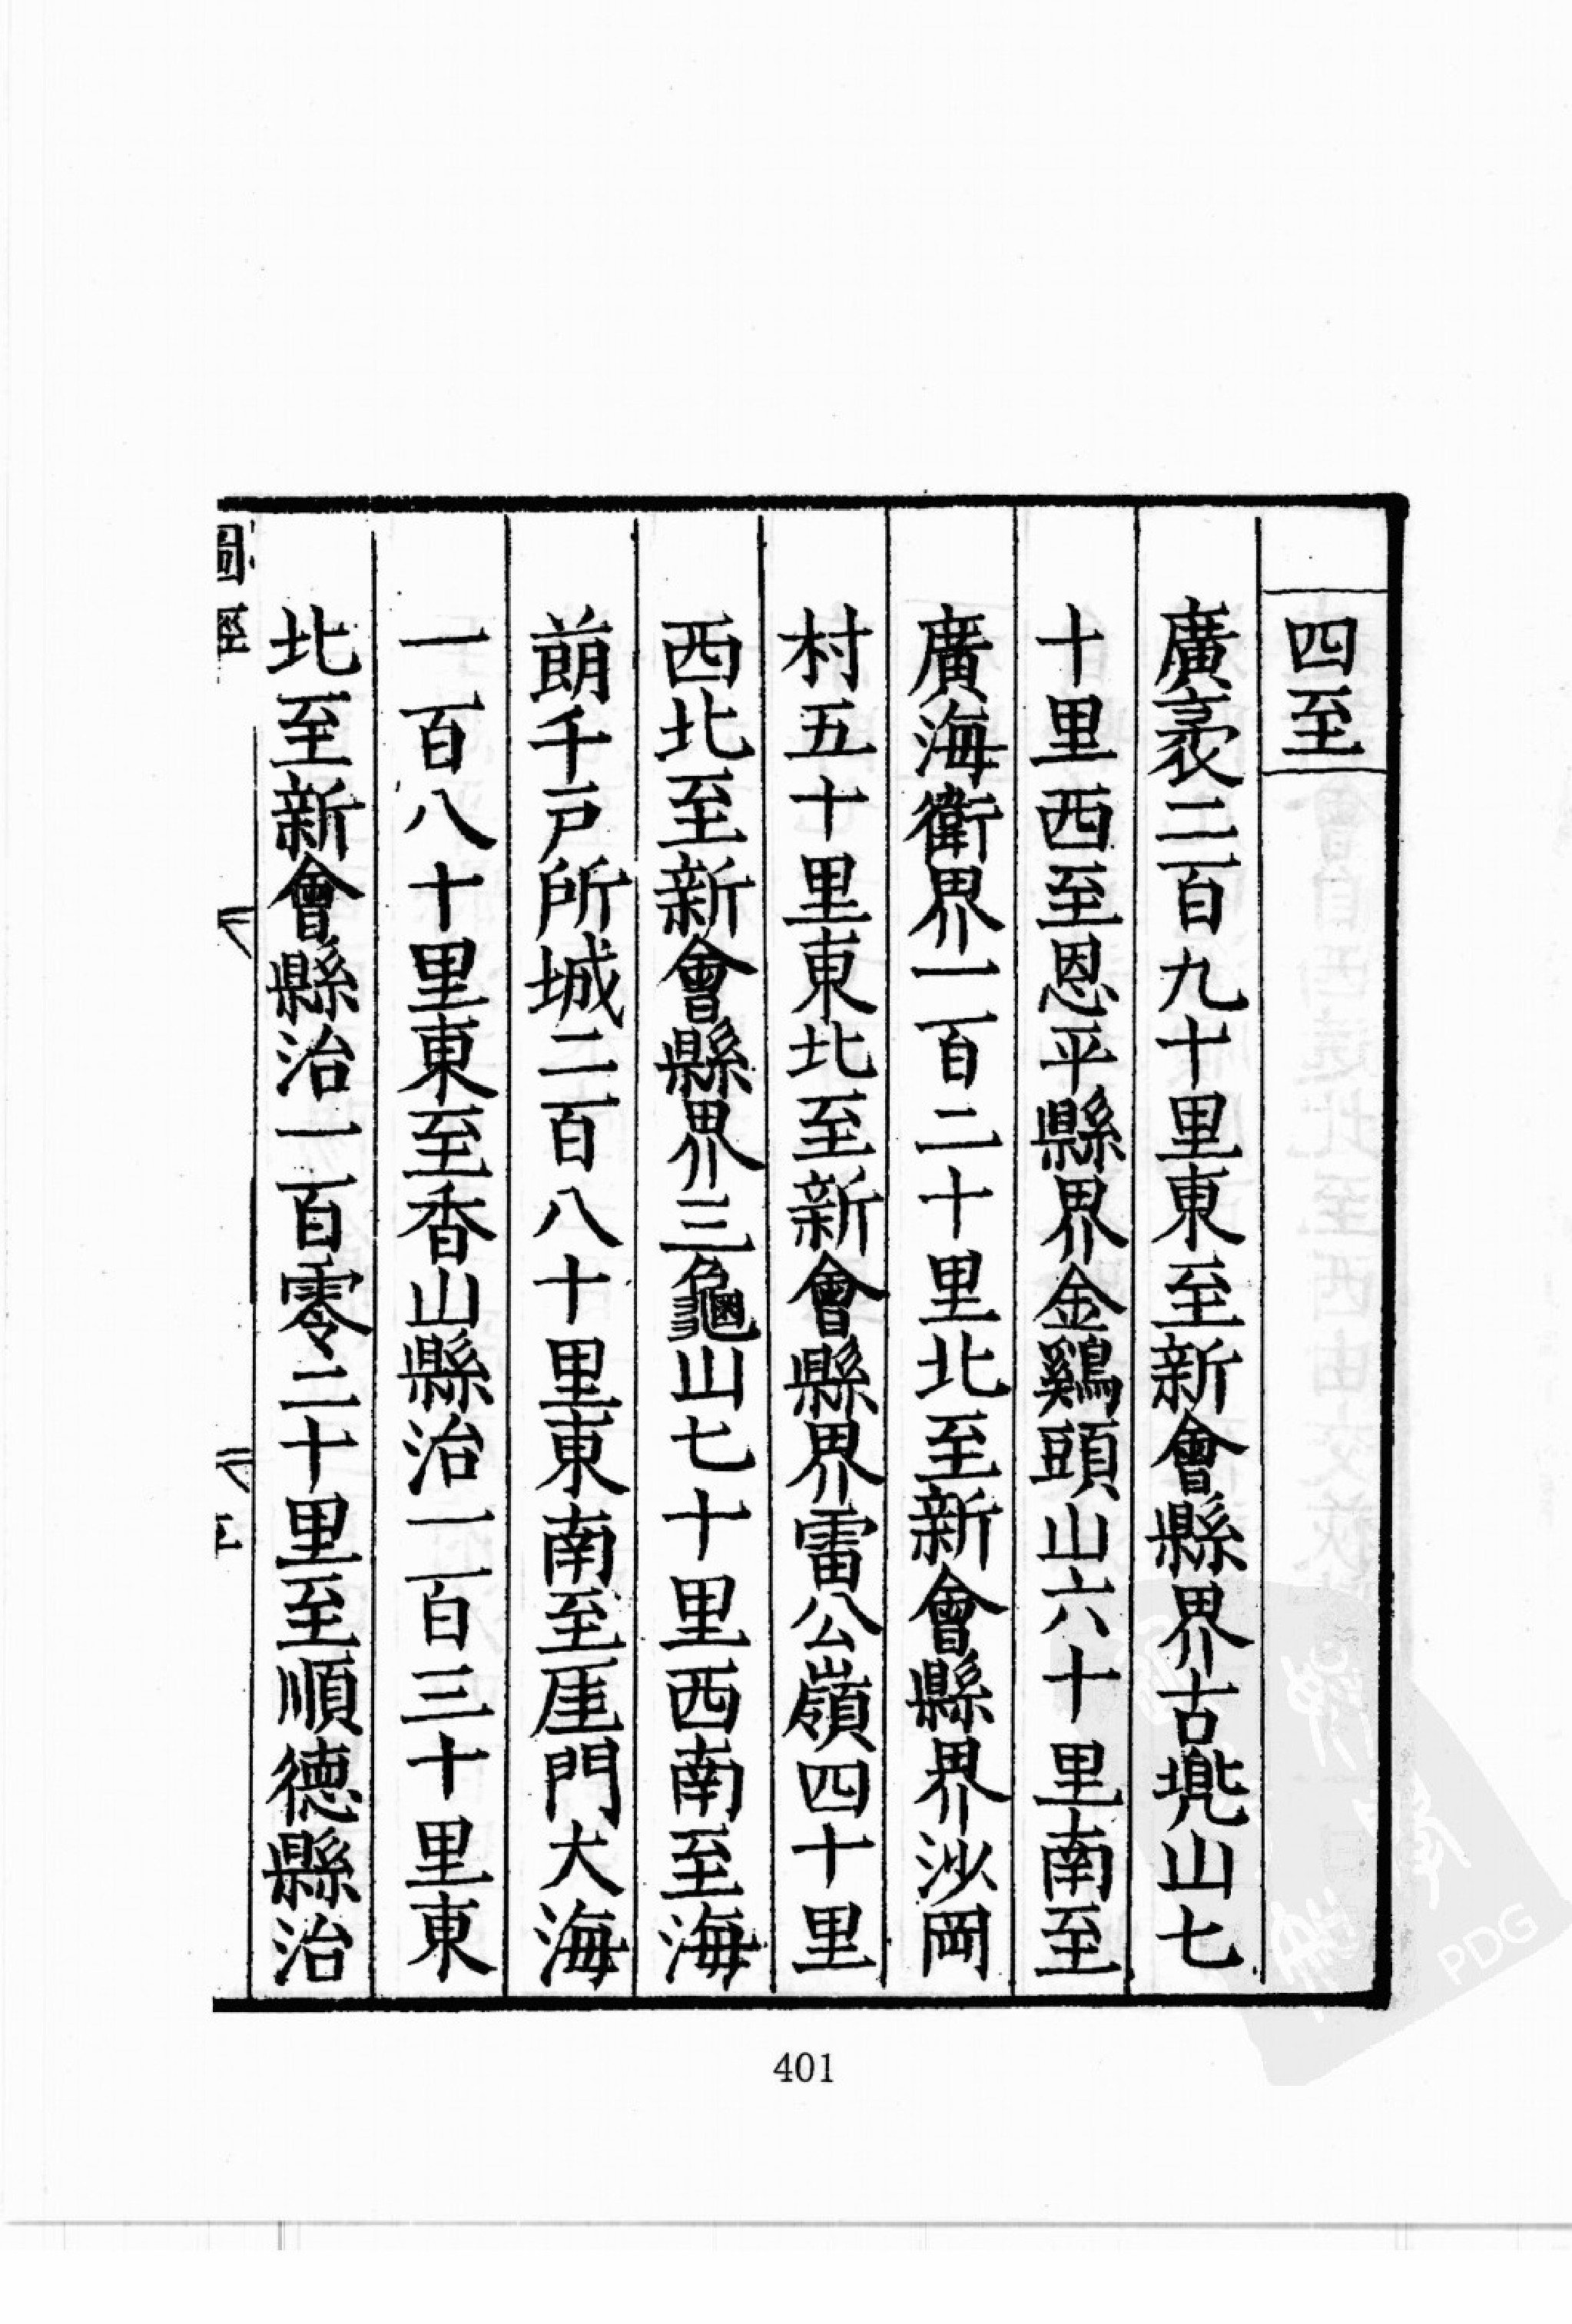 四至
廣袤二百九十里東至新會縣界古兠山七
十里西至恩平縣界金鷄頭山六十里南至
廣海衛界一百二十里北至新會縣界沙岡
村五十里東北至新會縣界雷公嶺四十里
西北至新會縣界三龜山七十里西南至海
萠千戸所城二百八十里東南至厓門大海
一百八十里東至香山縣治一百三十里東
北至新會縣治一百零二十里至順德縣治
圖經
401
PDG